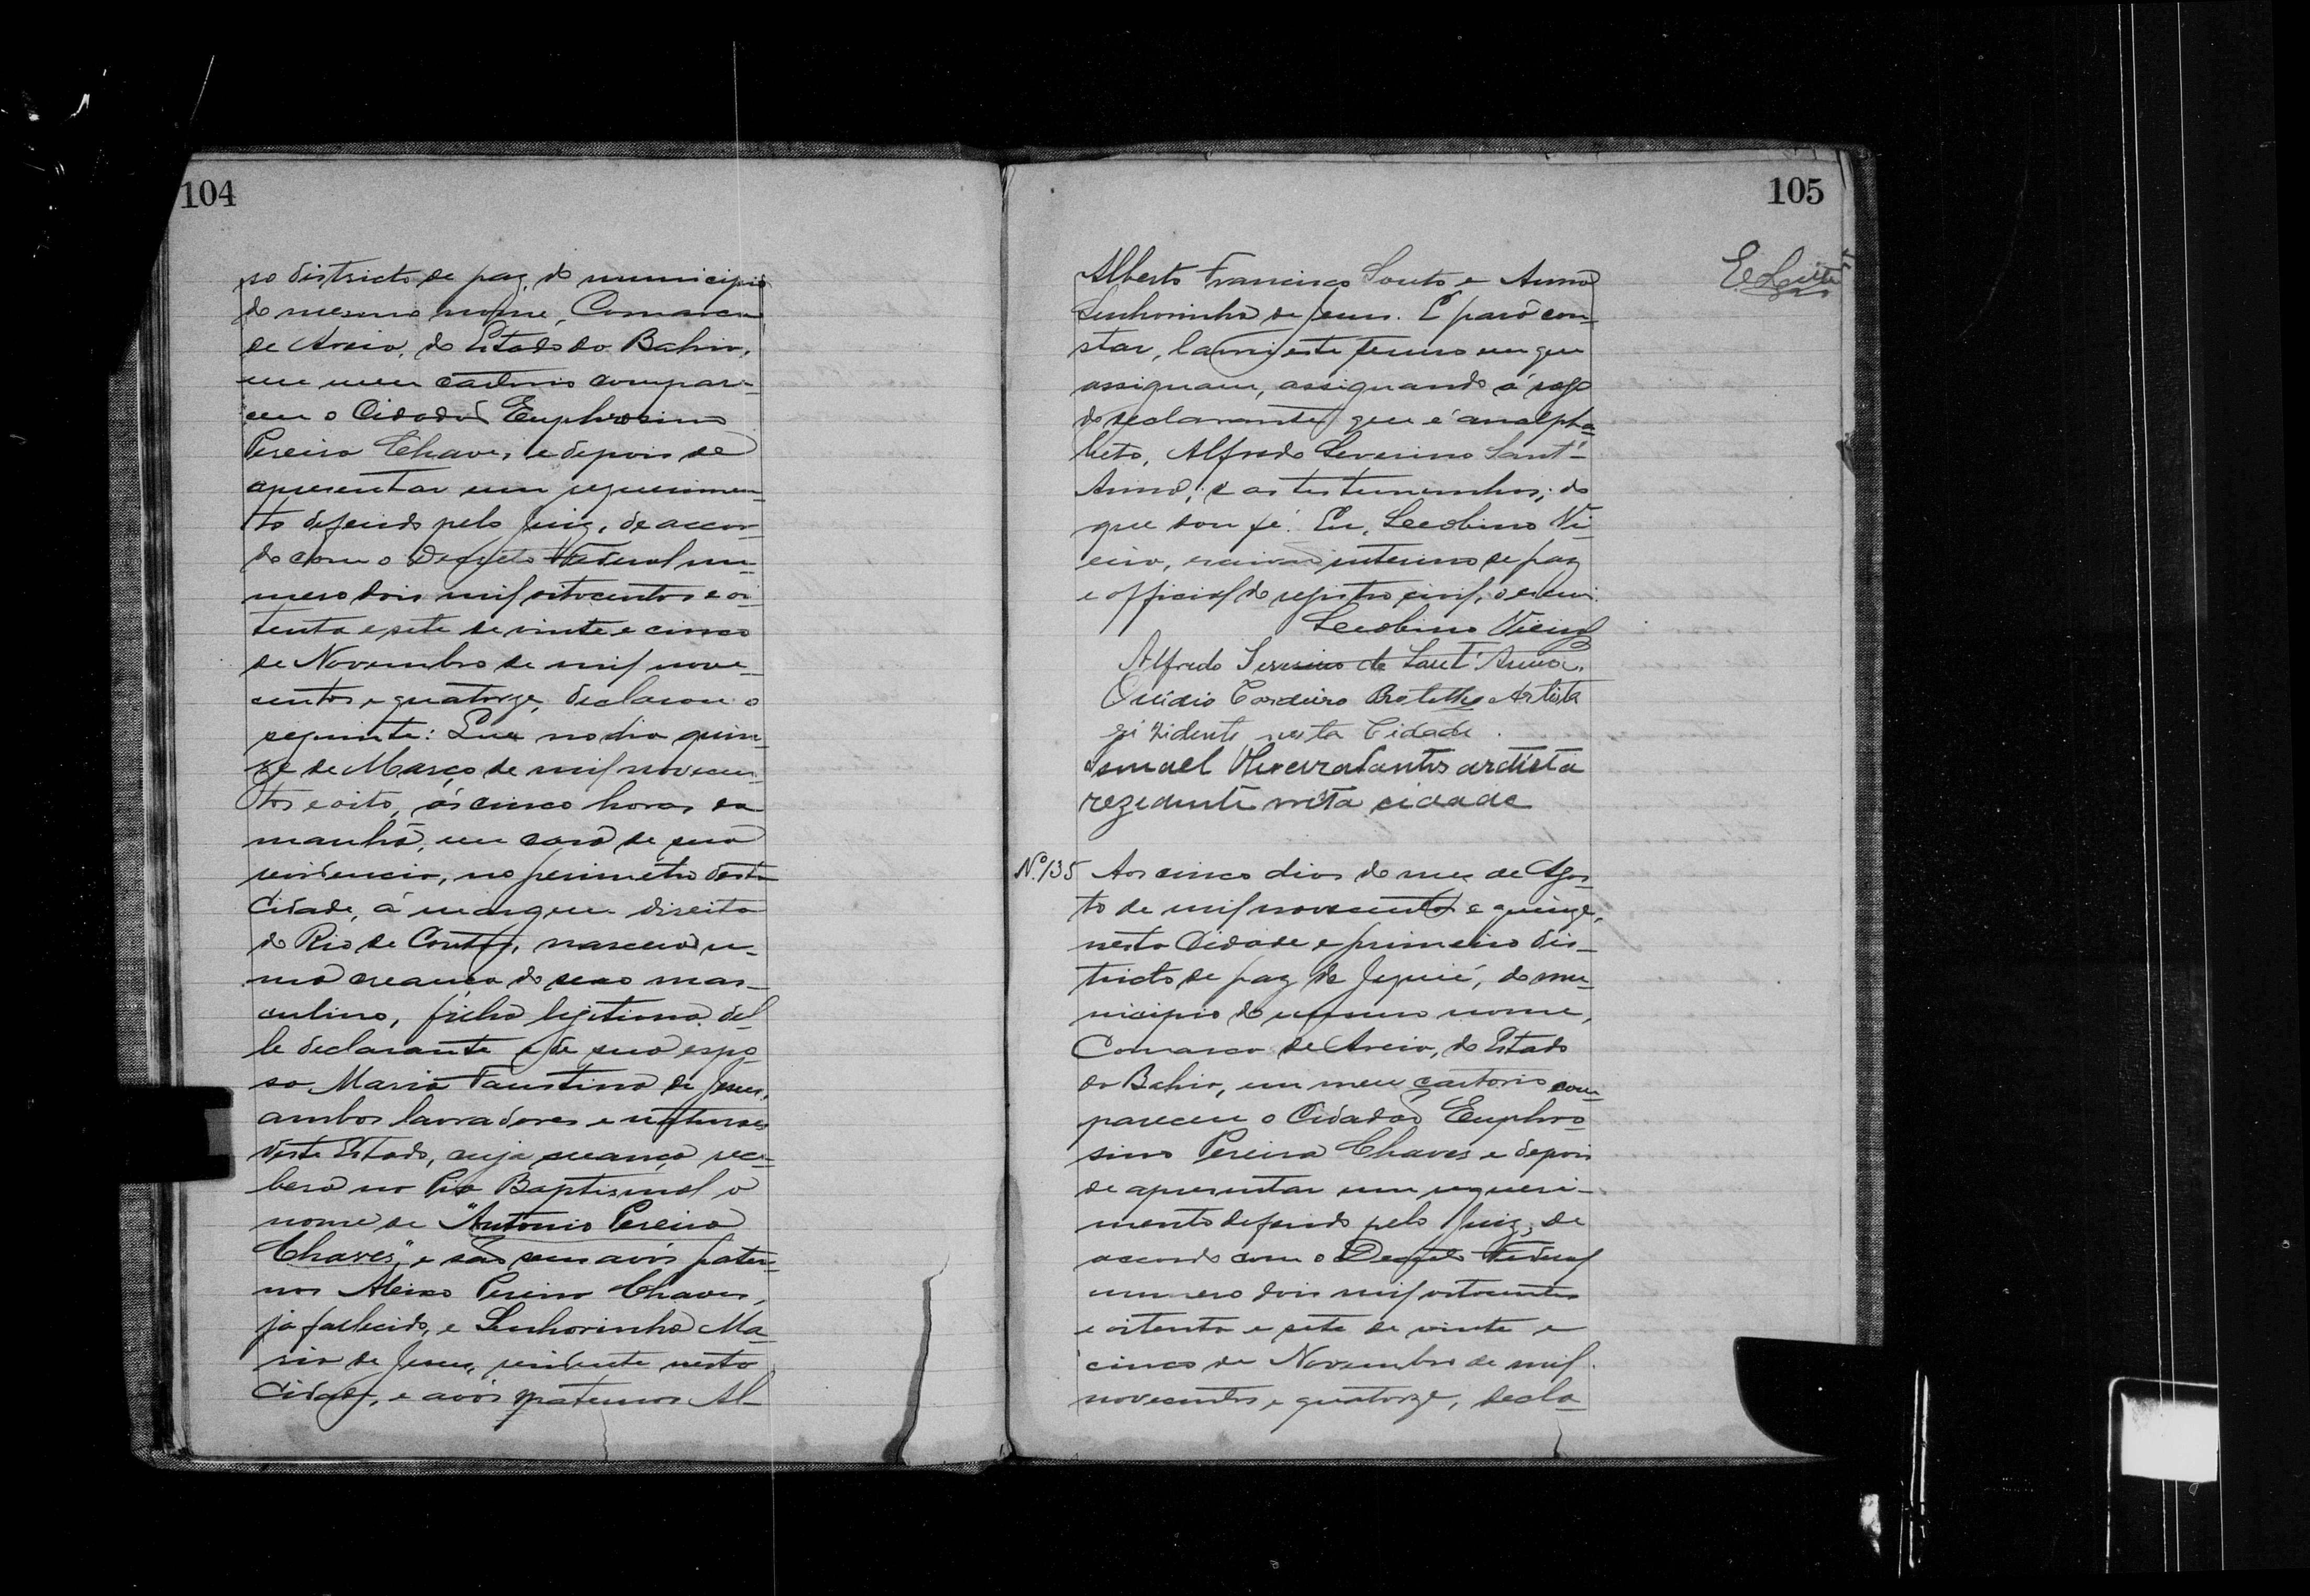 104
ro districto de paz, do municipio
do mesmo nome, Comarca
de Areia, do Estado da Bahia,
em meu cartorio compare-
ceu o Cidadão Euphrosino
Pereira Chaves, e depois de
apresentar um requerimen-
to deferido pelo Juiz, de accor-
do com o Decreto Federal nu-
mero dois mil oitocentos e oi-
tenta e sete de vinte e cinco
de Novembro de mil nove-
centos e quatorze, declarou o
seguinte: Que no dia quin-
ze de Março de mil novecen-
tos e oito, ás cinco horas da
manhã, em casa de sua
residencia, no perimetro desta
Cidade, á margem direita
do Rio de Contas, nasceu u-
ma creança do sexo mas-
culino, filha legitima del-
le declarante e de sua espo-
sa Maria Faustina de Jesus,
ambos lavradores e naturaes
deste Estado, cuja creança rece-
berá na Pia Baptismal o
nome de "Antonio Pereira
Chaves", e são seus avós pater-
nos Aleixo Pereira Chaves,
já fallecido, e Senhorinha Ma-
ria de Jesus, residente nesta
Cidade, e avós maternos Al-
105
Alberto Francisco Souto e Anna
Senhorinha de Jesus. E para con-
star, lavrei este termo em que
assignam, assignando á rogo
do declarante, que é analpha-
beto, Alfredo Severino Sant'-
Anna, e as testemunhas; do
que dou fé. Eu, Leobino Vi-
eira, escrivão interino de paz
e official do registro civil, o escrevi.
Leobino Vieira
Alfredo Severino de Sant'Anna.
Ovidio Cordeiro Botelho Artista
rezidente nesta Cidade.
Ismael Oliveira Santos artista
rezedente nesta cidade
Nº 135 Aos cinco dias do mez de Agos-
to de mil novecentos e quinze,
nesta Cidade e primeiro dis-
tricto de paz de Jequié, do mu-
nicipio do mesmo nome,
Comarca de Areia, do Estado
da Bahia, em meu cartorio com-
pareceu o Cidadão Euphro-
sino Pereira Chaves e depois
de apresentar um requeri-
mento deferido pelo Juiz, de
accordo com o Decreto Federal
numero dois mil oitocentos
e oitenta e sete de vinte e
cinco de Novembro de mil
novecentos e quatorze, decla-